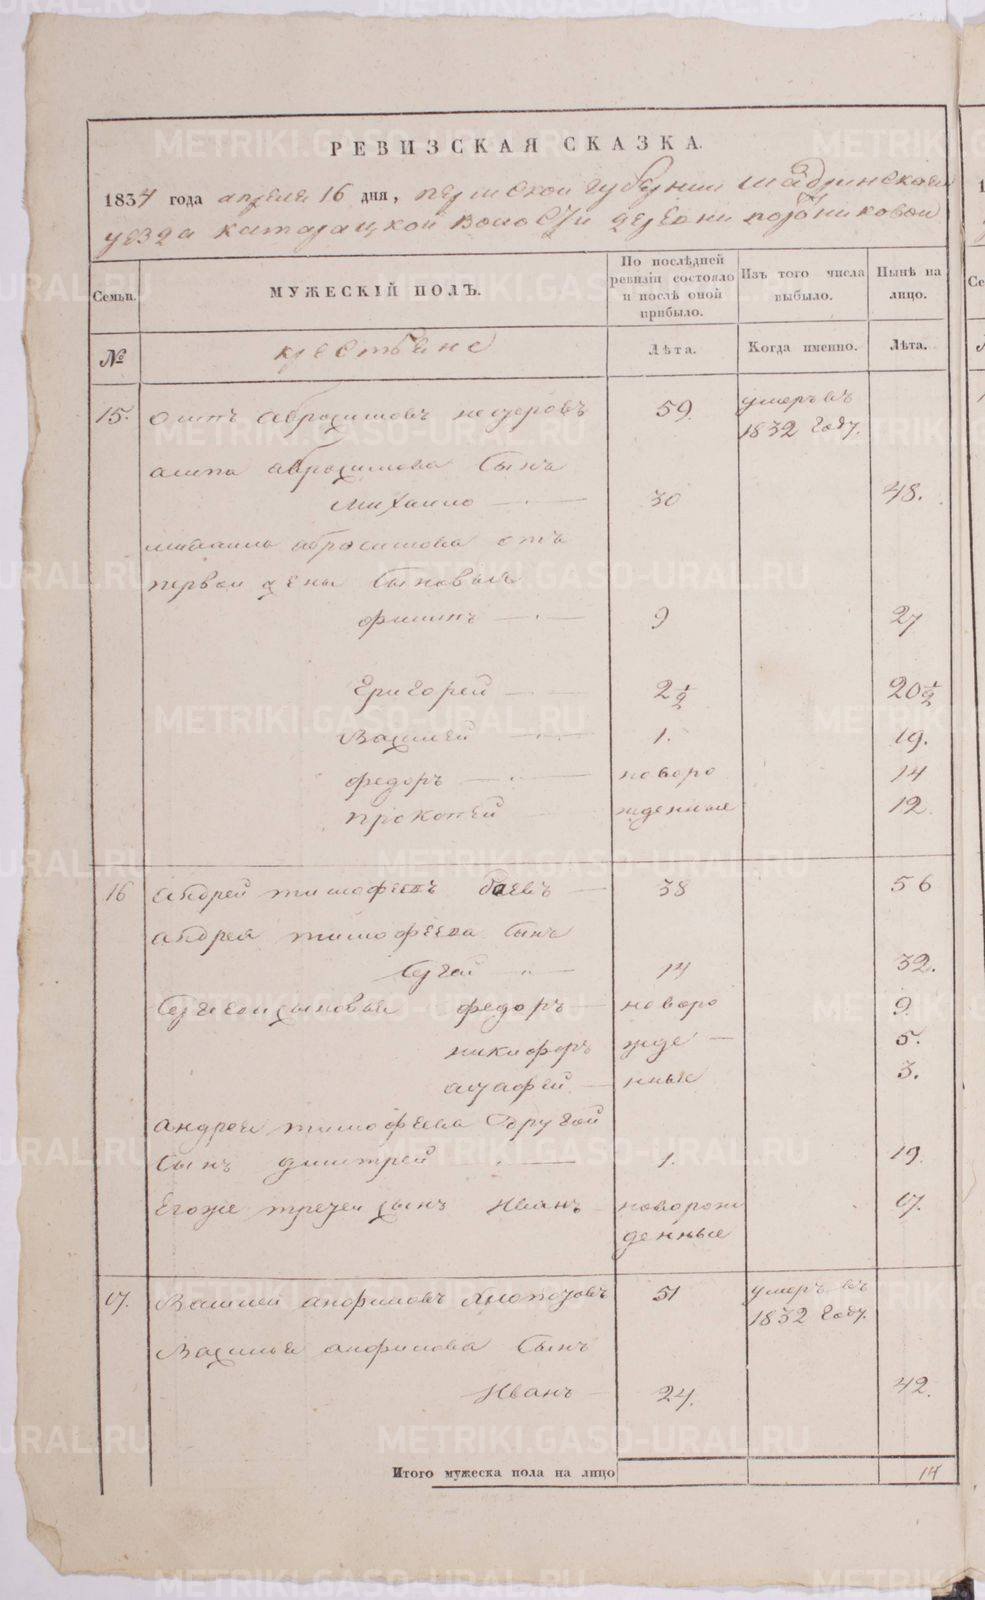 РЕВИЗСКАЯ СКАЗКА.
1834 года апреля 16 дня, пермской губернии шадринскаго
уезда катарацкой волости деревни
Семьи.
МУЖЕСКІЙ ПОЛЪ.
По послѣдней ревизіи состояло и послѣ оной прибыло.
Изъ того числа выбыло.
Нынѣ на лицо.
№
крестьяне
Лѣта.
Когда именно.
Лѣта.
15. осипъ абросимовъ 59. умеръ въ
1832 году.
осипа абросимова сынъ
михаило 30 48.
михаила абросимова отъ
первой жены сыновья
филипъ 9 27
Григорей 2 1/2 20 1/2
Василей 1. 19.
федоръ новоро 14
прокопей жденные 12
16 андрей тимофеевъ баевъ 38 56
андрея тимофеева сынъ
сергей 14 32.
сергея сыновья федоръ новоро 9.
никифоръ жде 5.
нные 3.
андрея тимофеева другой
сынъ дмитрей 1. 19.
Егоже третей сынъ Иванъ новорож 17.
денные
17. Василей анфиловъ 51 умеръ въ
1832 году.
Василья анфилова сынъ
Иванъ 24. 42.
Итого мужеска пола на лицо 14
METRIKI.GASO-URAL.RU